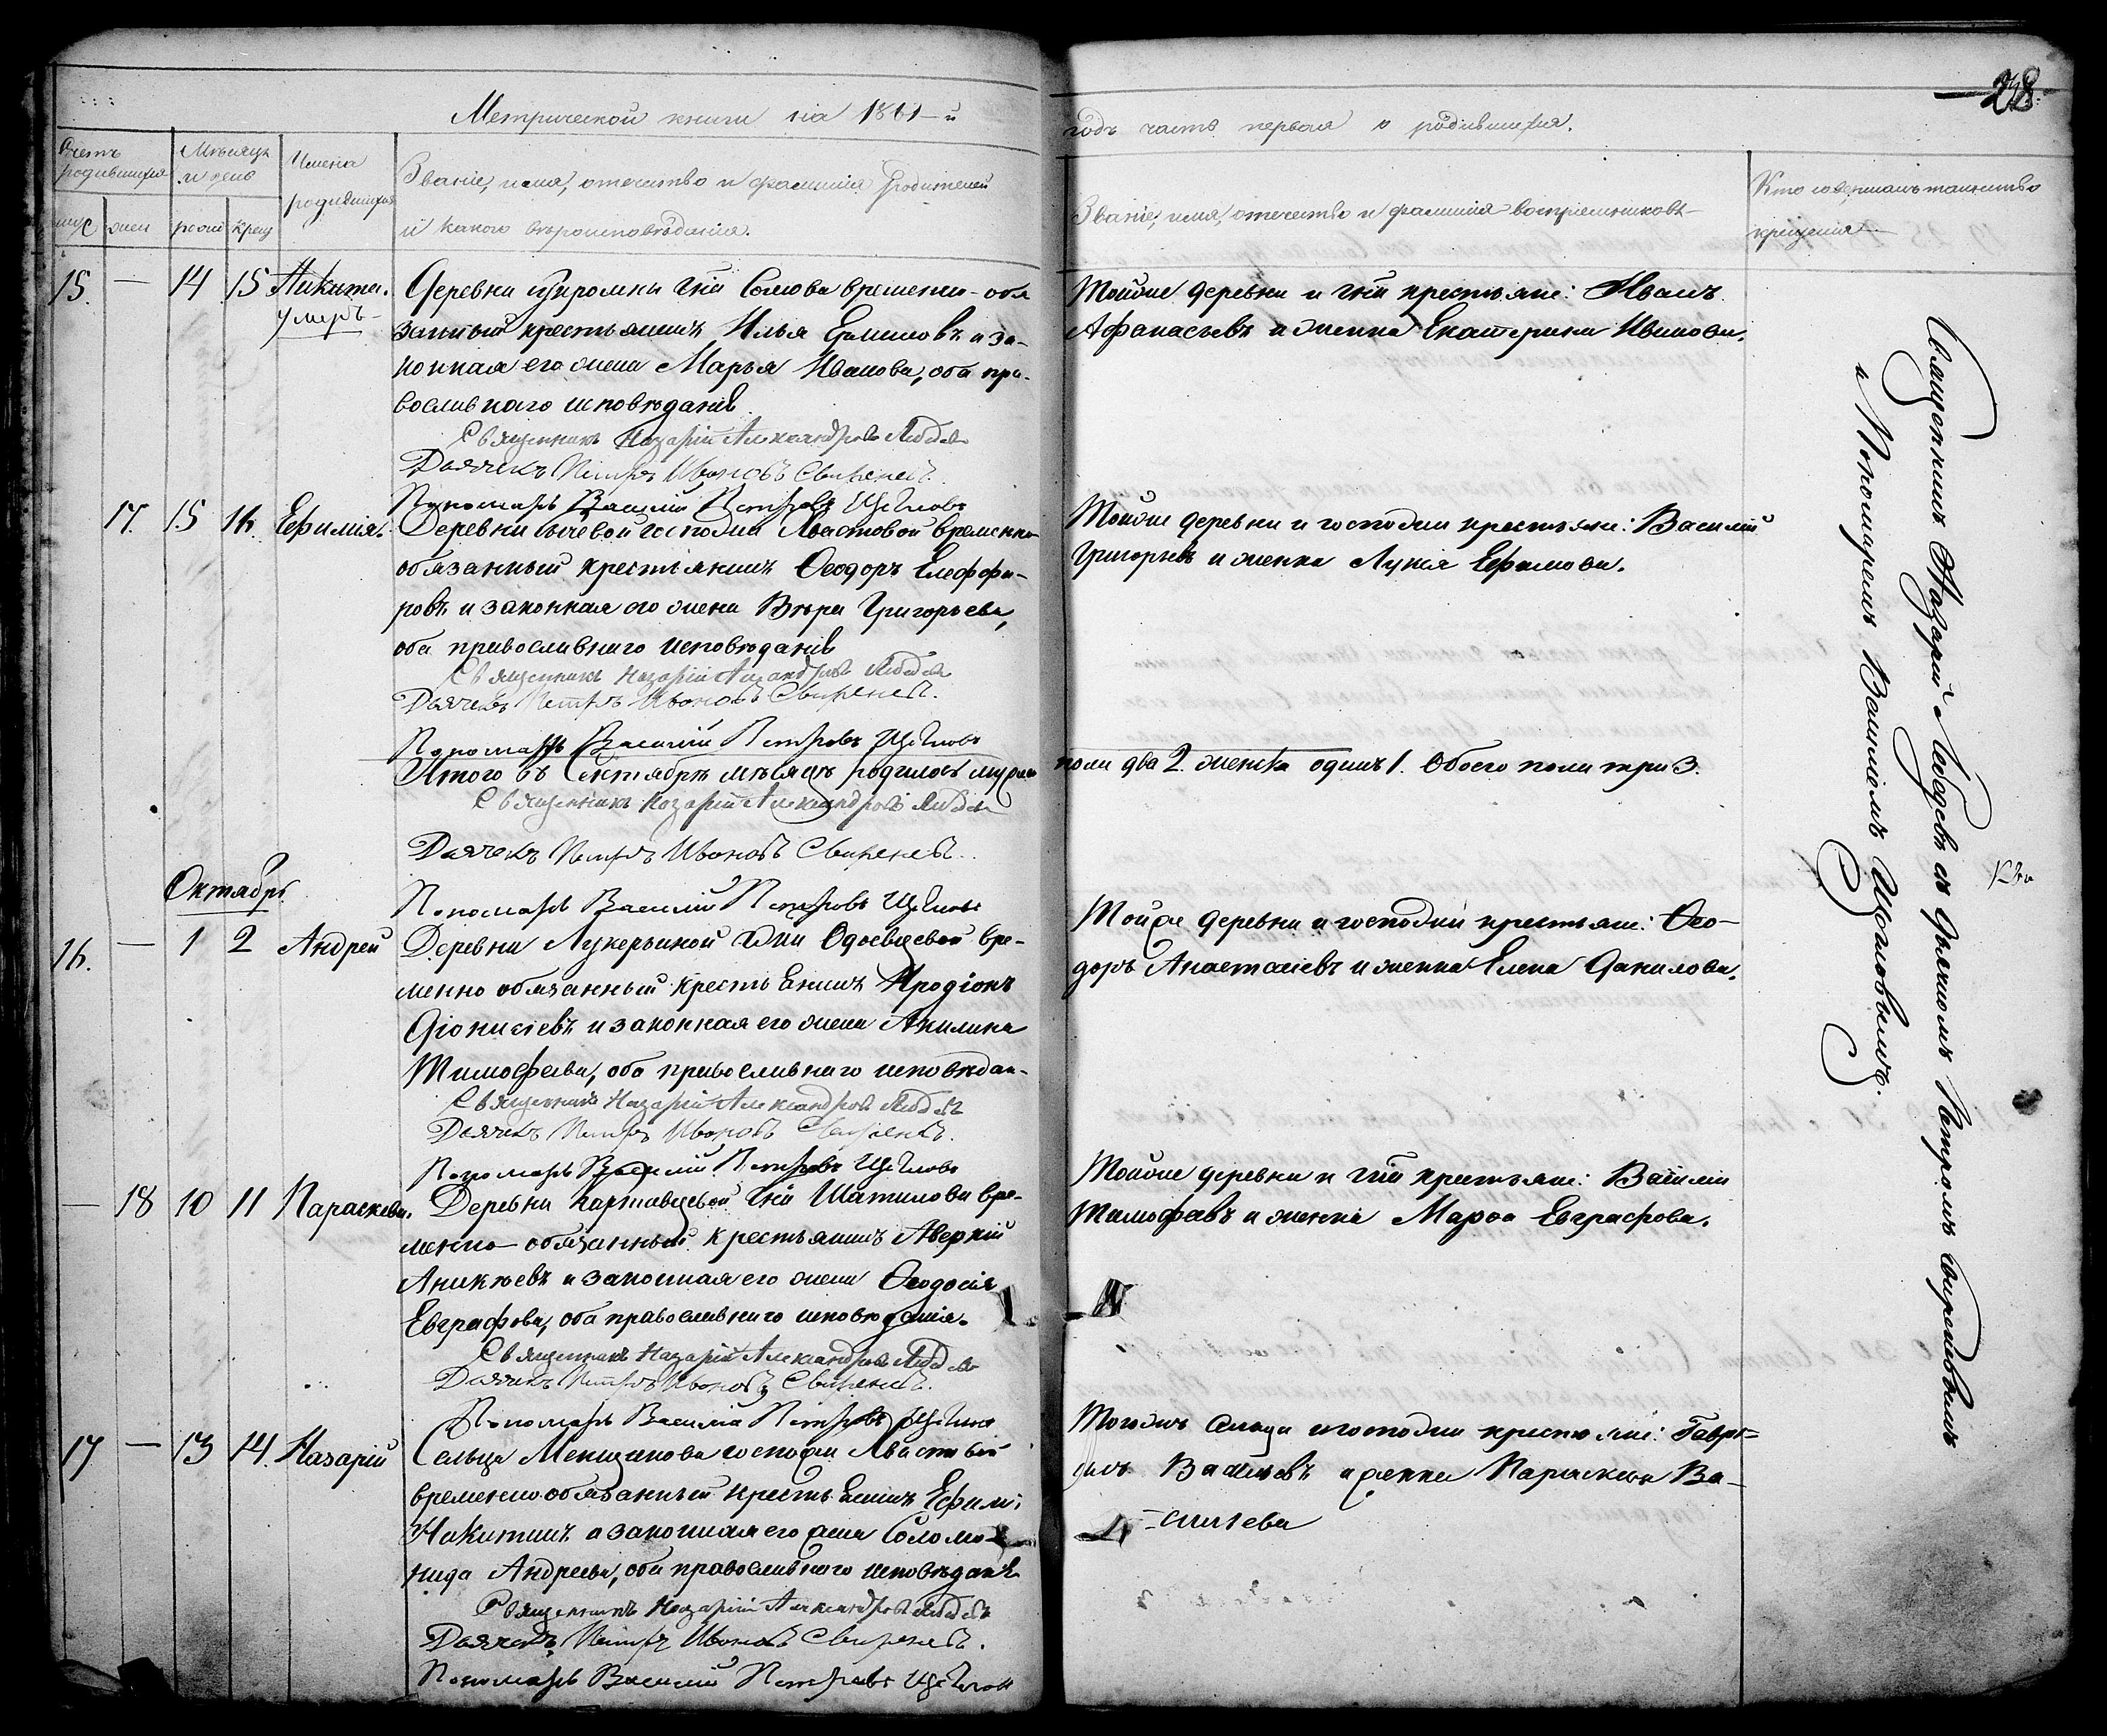 Метрической книги на 1861-й
годъ часть первая о родившихся.
28
Счетъ родившихся
Мѣсяцъ и день
Имена родившихся
Званіе, имя, отчество и фамилія родителей
и какого вѣроисповѣданія.
Званіе, имя, отчество и фамилія воспріемниковъ
Кто совершалъ таинство
крещенія
муж жен рожд крещ
15. — 14 15 Никита.
умеръ
Деревни гна Сомова временно-обя
занный крестьянинъ Илья Ермиловъ и за-
конная его жена Марья Иванова, оба пра-
вославнаго исповѣданія
Священникъ Назарій Александровъ Лебедевъ
Дьячекъ Петръ Ивановъ Свиреневъ.
Пономарь Василій Петровъ Щегловъ
Тойже деревни и гна крестьяне: Иванъ
Афанасьевъ и женка Екатерина Иванова.
17. 15 16. Евфимія.
Деревни господина временно
обязанный крестьянинъ Ѳеодоръ Елефѳе-
ровъ и законная его жена Вѣра Григорьева,
оба православнаго исповѣданія
Священникъ Назарій Александровъ Лебедевъ
Дьячекъ Петръ Ивановъ Свиреневъ.
Пономарь Василій Петровъ Щегловъ
Тойже деревни и господина крестьяне: Василій
Григорьевъ и женка Лукія Ефимова.
Итого въ Сентябрѣ мѣсяцѣ родилось мужеска
пола два 2. женска одинъ 1. Обоего пола три 3.
Священникъ Назарій Александровъ Лебедевъ
Дьячекъ Петръ Ивановъ Свиреневъ.
Пономарь Василій Петровъ Щегловъ
Октябрь
16. — 1 2 Андрей
Деревни Лукерьиной Одоевцевой вре-
менно обязанный крестьянинъ Иродіонъ
Діонисіевъ и законная его жена Акилина
Тимофеева, оба православнаго исповѣдан-
Священникъ Назарій Александровъ Лебедевъ
Дьячекъ Петръ Ивановъ Свиреневъ.
Пономарь Василій Петровъ Щегловъ
Тойже деревни и господина крестьяне: Ѳео-
доръ Анастасіевъ и женка Елена Данилова.
— 18 10 11 Параскева.
Деревни Картавцевой гна Шатилова вре-
менно-обязанный крестьянинъ Аверкій
Аникѣевъ и законная его жена Ѳеодосія
Евграфова, оба православнаго исповѣданія.
Священникъ Назарій Александровъ Лебедевъ
Дьячекъ Петръ Ивановъ Свиреневъ.
Пономарь Василій Петровъ Щегловъ
Тойже деревни и гна крестьяне: Василій
Тимофеевъ и женка Марѳа Евграфова.
17 — 13 14. Назарій
Сельца господина
временно обязанный крестьянинъ Ефимъ
Никитинъ и законная его жена Соломо-
нида Андреева, оба православнаго исповѣданія
Священникъ Назарій Александровъ Лебедевъ
Дьячекъ Петръ Ивановъ Свиреневъ.
Пономарь Василій Петровъ Щегловъ
Тогожъ сельца и господина крестьяне: Гаврі-
илъ Васильевъ и женка Параскева Ва-
=сильева
Священникъ Назарій Лебедевъ съ Дьячкомъ Петромъ Свиреневымъ
и Пономаремъ Василіемъ Щегловымъ.